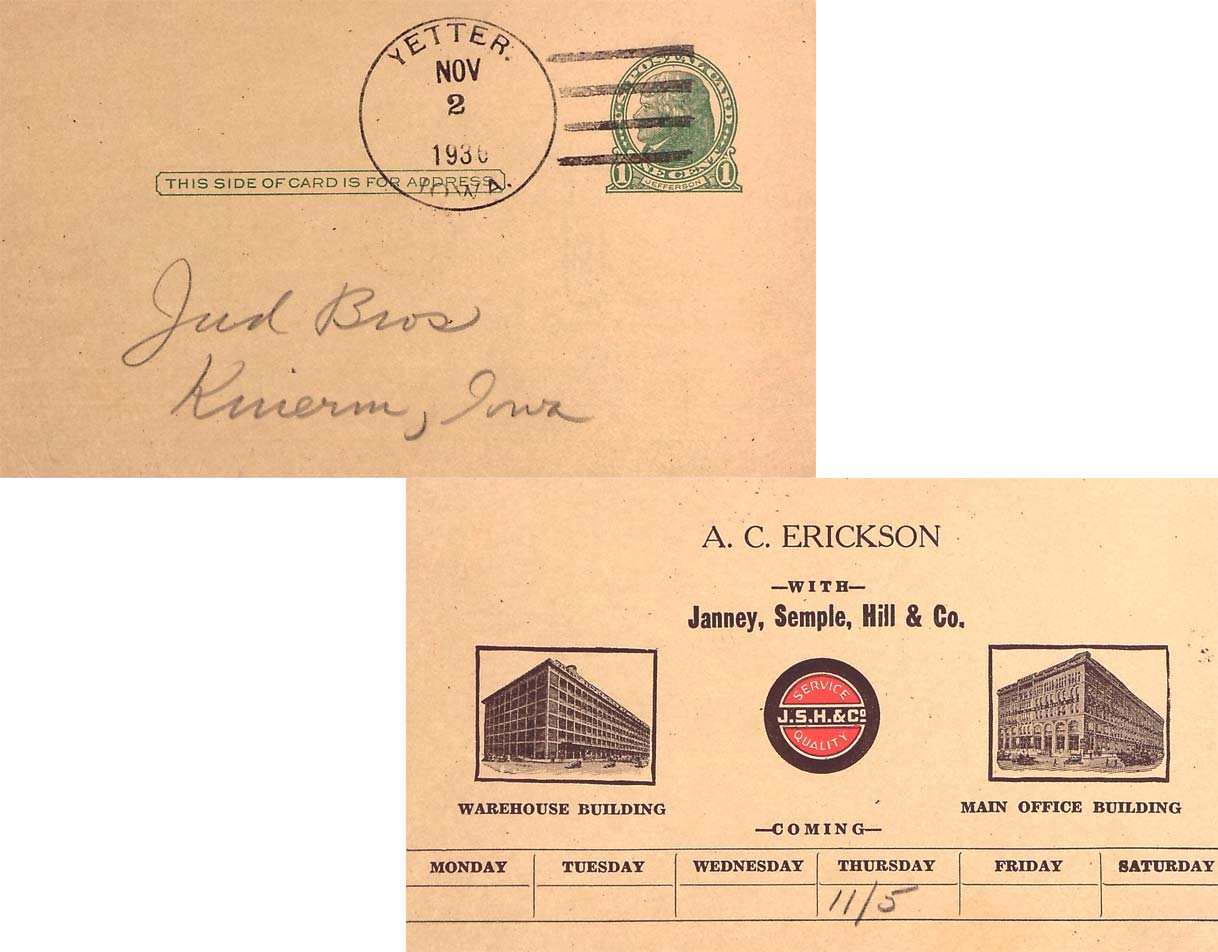 YETTER.
NOV
2
1936
IOWA.
U.S. POSTAL CARD
ONE CENT
1 JEFFERSON 1
THIS SIDE OF CARD IS FOR ADDRESS
Jud Bros
Knierm, Iowa
A. C. ERICKSON
—WITH—
Janney, Semple, Hill & Co.
SERVICE
J.S.H.&Co
QUALITY
WAREHOUSE BUILDING
MAIN OFFICE BUILDING
—COMING—
MONDAY TUESDAY WEDNESDAY THURSDAY FRIDAY SATURDAY
11/5